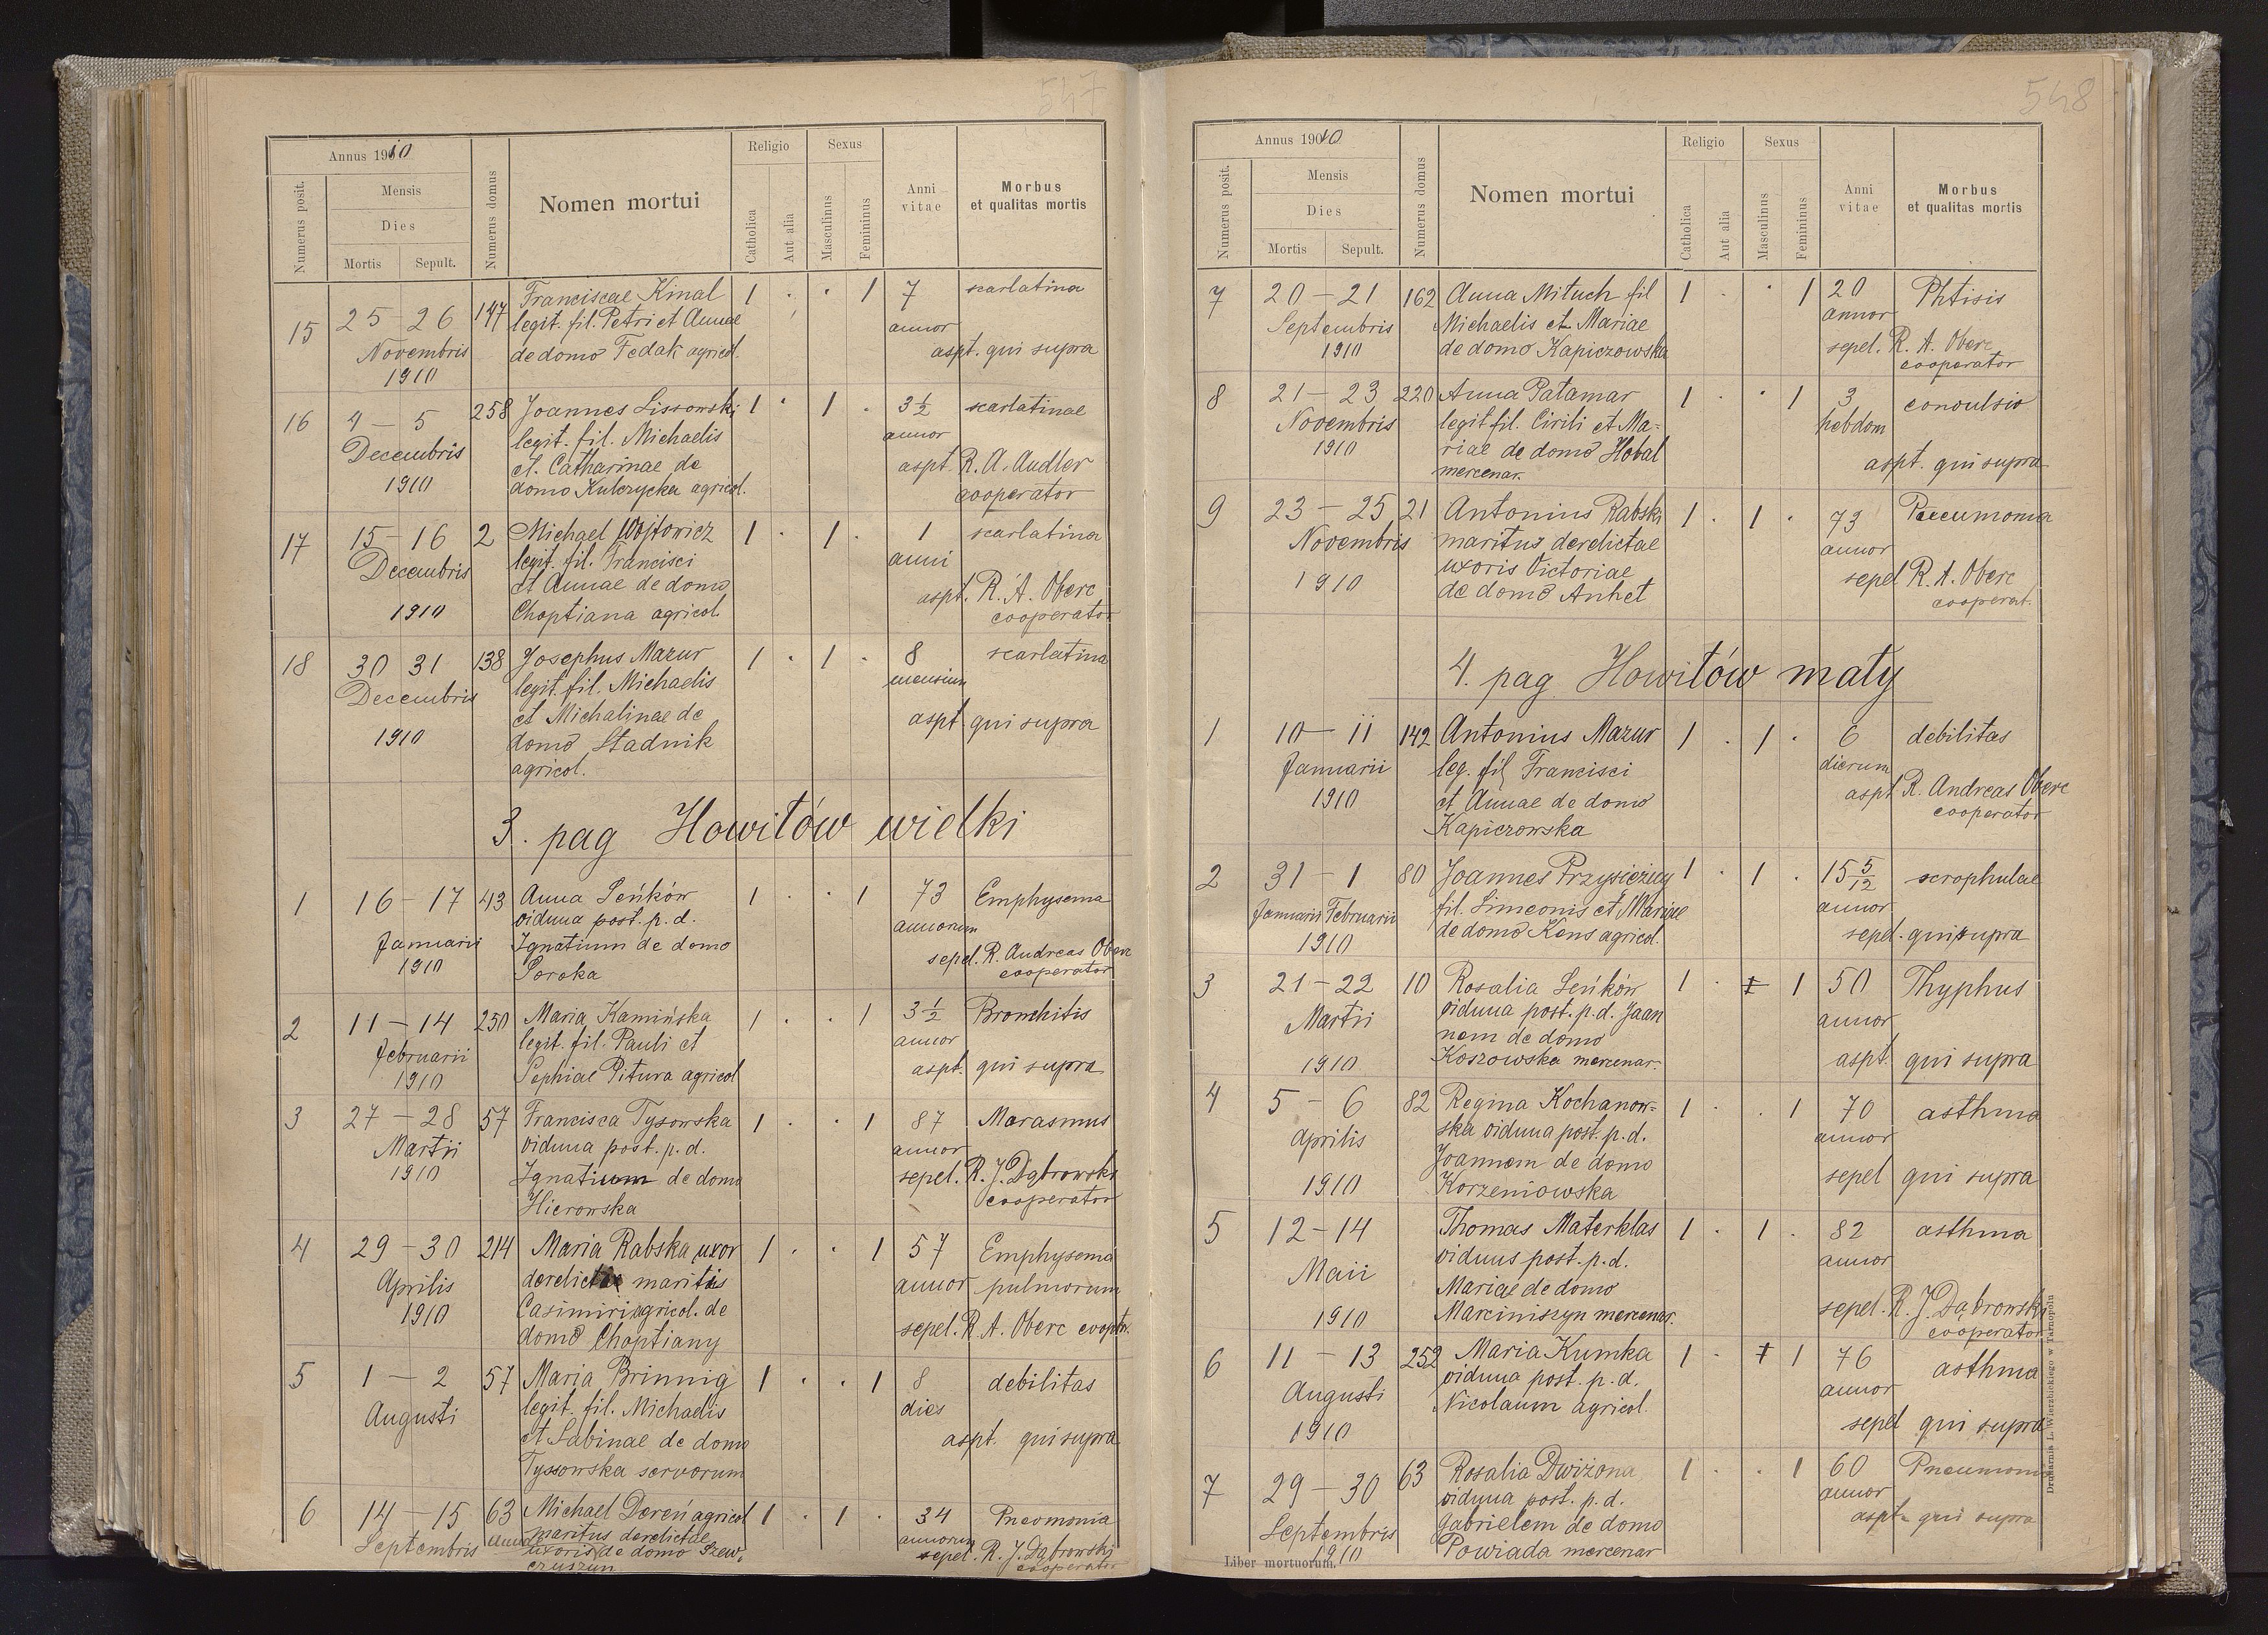 547
Annus 1910
Numerus posit.
Mensis
Dies
Mortis Sepult.
Numerus domus
Nomen mortui
Religio
Catholica
Aut alia
Sexus
Masculinus
Femininus
Anni vitae
Morbus
et qualitas mortis
15 25 - 26 147 Franciscae Kinal 1 . . 1 7 scarlatina
Novembris legit. fil. Petri et Annae annor
1910 de domo Fedak agricol. aspt. qui supra
16 4 - 5 258 Joannes Lissowski 1 . 1 . 3 1/2 scarlatinae
Decembris legit. fil. Michaelis annor
1910 et. Catharinae de aspt. R. A. Audler
domo Kulczycka agricol. cooperator
17 15 - 16 2 Michael Wojtowicz 1 . 1 . 1 scarlatina
Decembris legit. fil. Francisci anni
1910 et Annae de domo aspt. R. A. Oberc
Choptiana agricol. cooperator
18 30 31 138 Josephus Mazur 1 . 1 . 8 scarlatina
Decembris legit. fil. Michaelis mensium
1910 et Michalinae de aspt. qui supra
domo Stadnik
agricol.
3. pag Howiłów wielki
1 16 - 17 43 Anna Seńków 1 . . 1 73 Emphysema
Januarii vidua post. p. d. annorum
1910 Ignatium de domo sepel. R. Andreas Oberc
Soroka cooperator
2 11 - 14 250 Maria Kamińska 1 . . 1 3 1/2 Bronchitis
februarii legit. fil. Pauli et annor
1910 Sophiae Pitura agricol aspt. qui supra
3 27 - 28 57 Francisca Tysowska 1 . . 1 87 Marasmus
Martii vidua post. p. d. annor
1910 Ignatium de domo sepel. R. J. Dąbrowski
Hierowska cooperator
4 29 - 30 214 Maria Rabska uxor 1 . . 1 57 Emphysema
Aprilis maritis annor pulmorum
1910 Casimiri agricol. de sepel. R. A. Oberc cooptr.
domo Choptiany
5 1 - 2 57 Maria Brinnig 1 . . 1 8 debilitas
Augusti legit. fil. Michaelis dies
et Sabinae de domo aspt. qui supra
Tyssowska servorum
6 14 - 15 63 Michael Dereń agricol 1 . 1 . 34 Pneomonia
Septembris maritus derelictae annorum
Annae uxoris de domo Szew- sepel. R. J. Dąbrowski
czyszyn cooperator
548
Annus 1910
Numerus posit.
Mensis
Dies
Mortis Sepult.
Numerus domus
Nomen mortui
Religio
Catholica
Aut alia
Sexus
Masculinus
Femininus
Anni vitae
Morbus
et qualitas mortis
7 20 - 21 162 Anna Mituch fil 1 . . 1 20 Phtisis
Septembris Michaelis et Mariae annor
1910 de domo Kapiczowska sepel. R. A. Oberc
cooperator
8 21 - 23 220 Anna Patamar 1 . . 1 3 convulsio
Novembris legit fil. Cirili et Ma= hebdom
1910 riae de domo Hobal aspt. qui supra
mercenar.
9 23 - 25 21 Antonius Rabski 1 . 1 . 73 Pneumonia
Novembris maritus derelictae annor
1910 uxoris Victoriae sepel R. A. Oberc
de domo Anhet cooperat.
4. pag Howiłów mały
1 10 - 11 142 Antonius Mazur 1 . 1 . 6 debilitas
Januarii leg. fil Francisci dierum
1910 et Annae de domo aspt. R. Andreas Oberc
Kapiczowska cooperator
2 31 - 1 80 Joannes Przysiężny 1 . 1 . 15 5/12 scrophulae
Januarii Februarii fil. Simeonis et Mariae annor
1910 de domo Kens agricol. sepel. qui supra
3 21 - 22 10 Rosalia Seńków 1 . 1 50 Thyphus
Martii vidua post. p. d. Joan annor
nem de domo
1910 Koszowska mercenar. aspt. qui supra
4 5 - 6 82 Regina Kochanow= 1 . . 1 70 asthma
Aprilis ska vidua post. p. d. annor
Joannem de domo
1910 Korzeniowska sepel qui supra
5 12 - 14 Thomas Materklas 1 . 1 . 82 asthma
Maii viduus post. p. d. annor
Mariae de domo
1910 Marciniszyn mercenar. sepel. R. J. Dąbrowski
cooperator
6 11 - 13 252 Maria Kumka 1 . 1 76 asthma
Augusti vidua post. p. d. annor
1910 Nicolaum agricol. sepel qui supra
7 29 - 30 63 Rosalia Dwiżona 1 . . 1 60 Pneumonia
Septembris vidua post. p. d. annor
1910 Gabrielem de domo aspt. qui supra
Powiada mercenar
Liber mortuorum.
Drukarnia L. Wierzbickiego w Tarnopolu